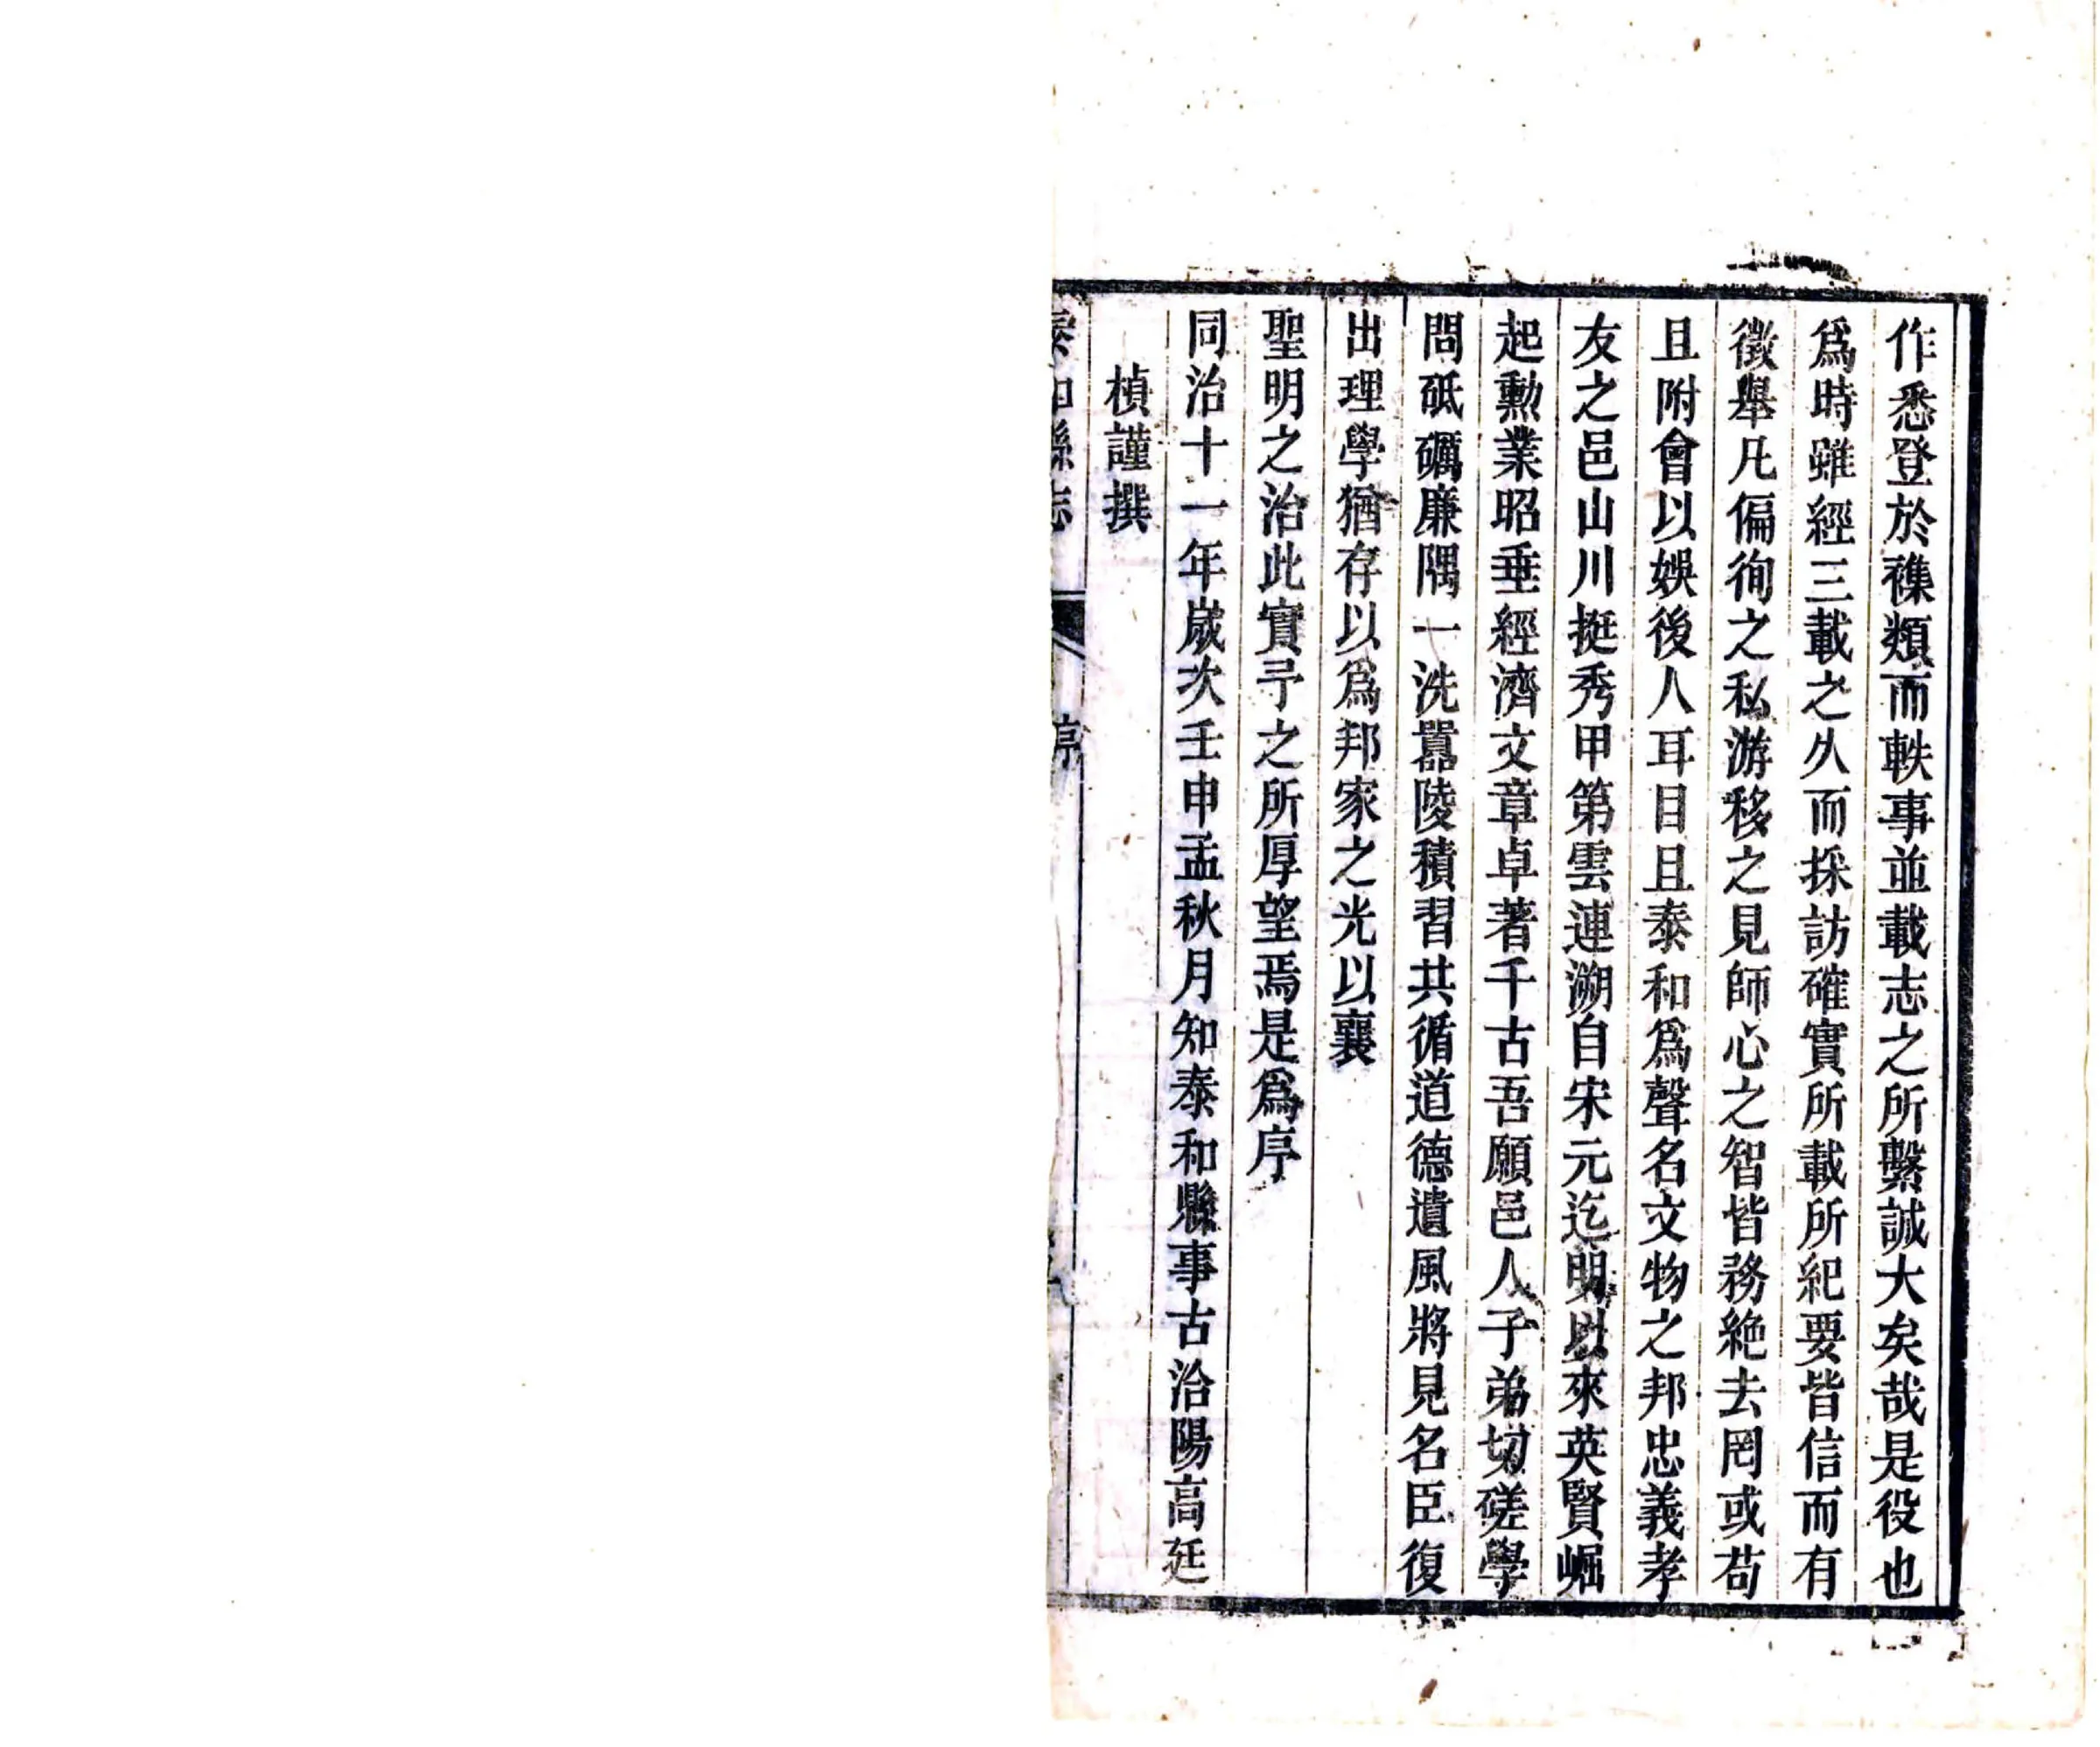 作悉登於襍類而軼事並載志之所繫誠大矣哉是役也
爲時雖經三載之久而採訪確實所載所紀要皆信而有
徵舉凡偏徇之私游移之見師心之智皆務絶去罔或苟
且附會以娛後人耳目且泰和爲聲名文物之邦忠義孝
友之邑山川挺秀甲第雲連溯自宋元迄明以來英賢崛
起勳業昭垂經濟文章卓著千古吾願邑人子弟切磋學
問砥礪廉隅一洗囂陵積習共循道德遺風將見名臣復
出理學猶存以爲邦家之光以襄
聖明之治此實予之所厚望焉是爲序
同治十一年歲次壬申孟秋月知泰和縣事古洽陽高廷
楨謹撰
泰和縣志
序